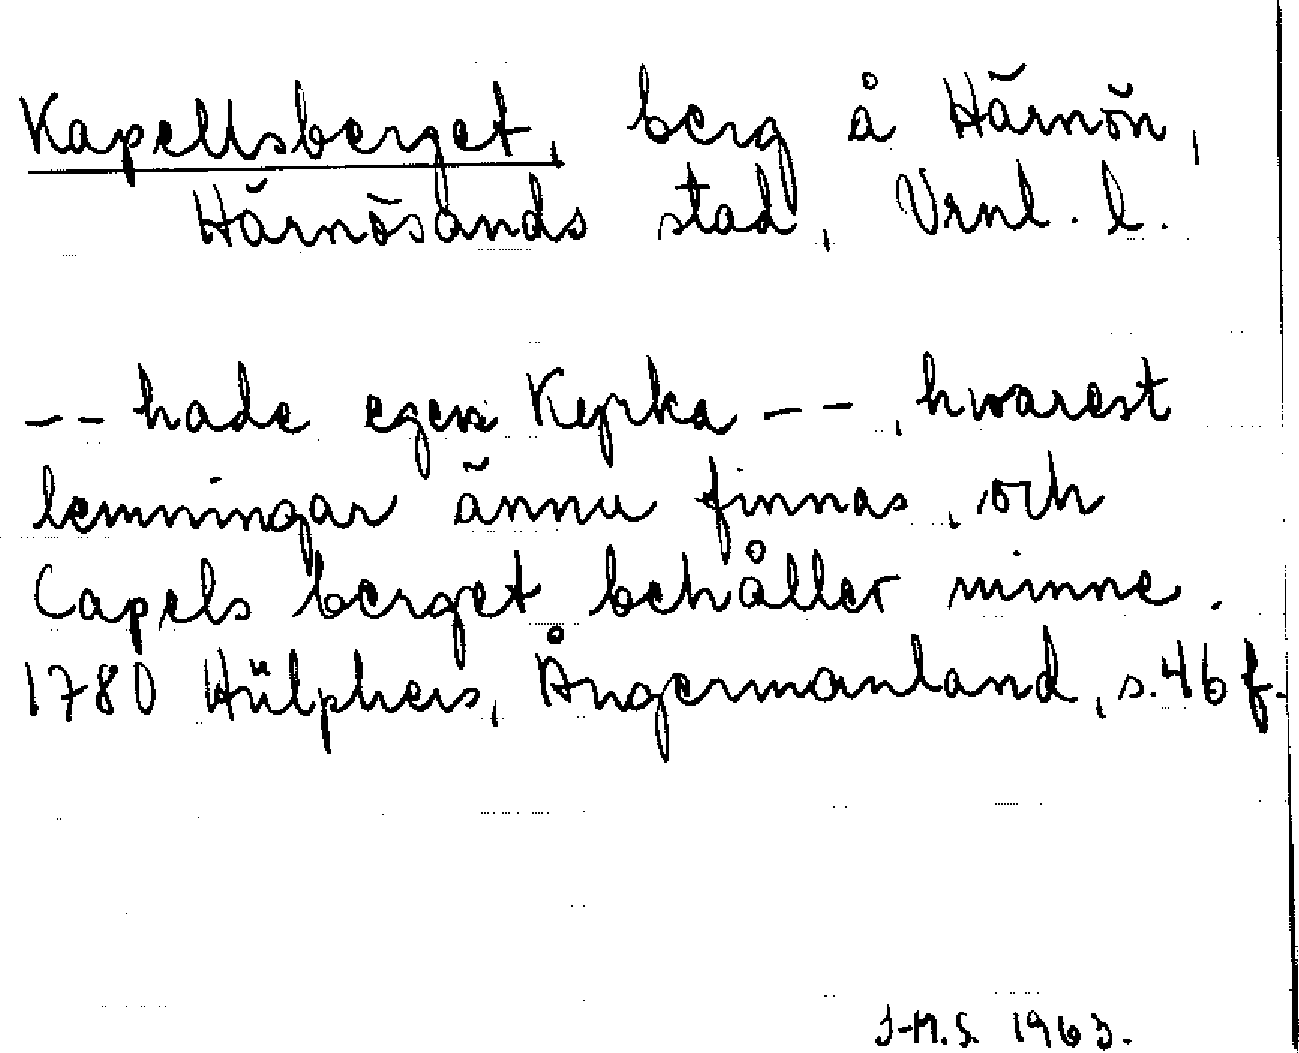 Kapellsberget, berg å Härnön,
Härnösands stad, Vrnl. l.
-- hade egen Kyrka --, hwarest
lemningar ännu finnas, och
Capels berget behåller minne.
1780 Hülphers, Ångermanland, s. 46 f.
J-M.S. 1963.